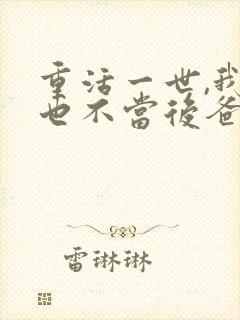 重活一世,我
也不當後爸
雷琳琳